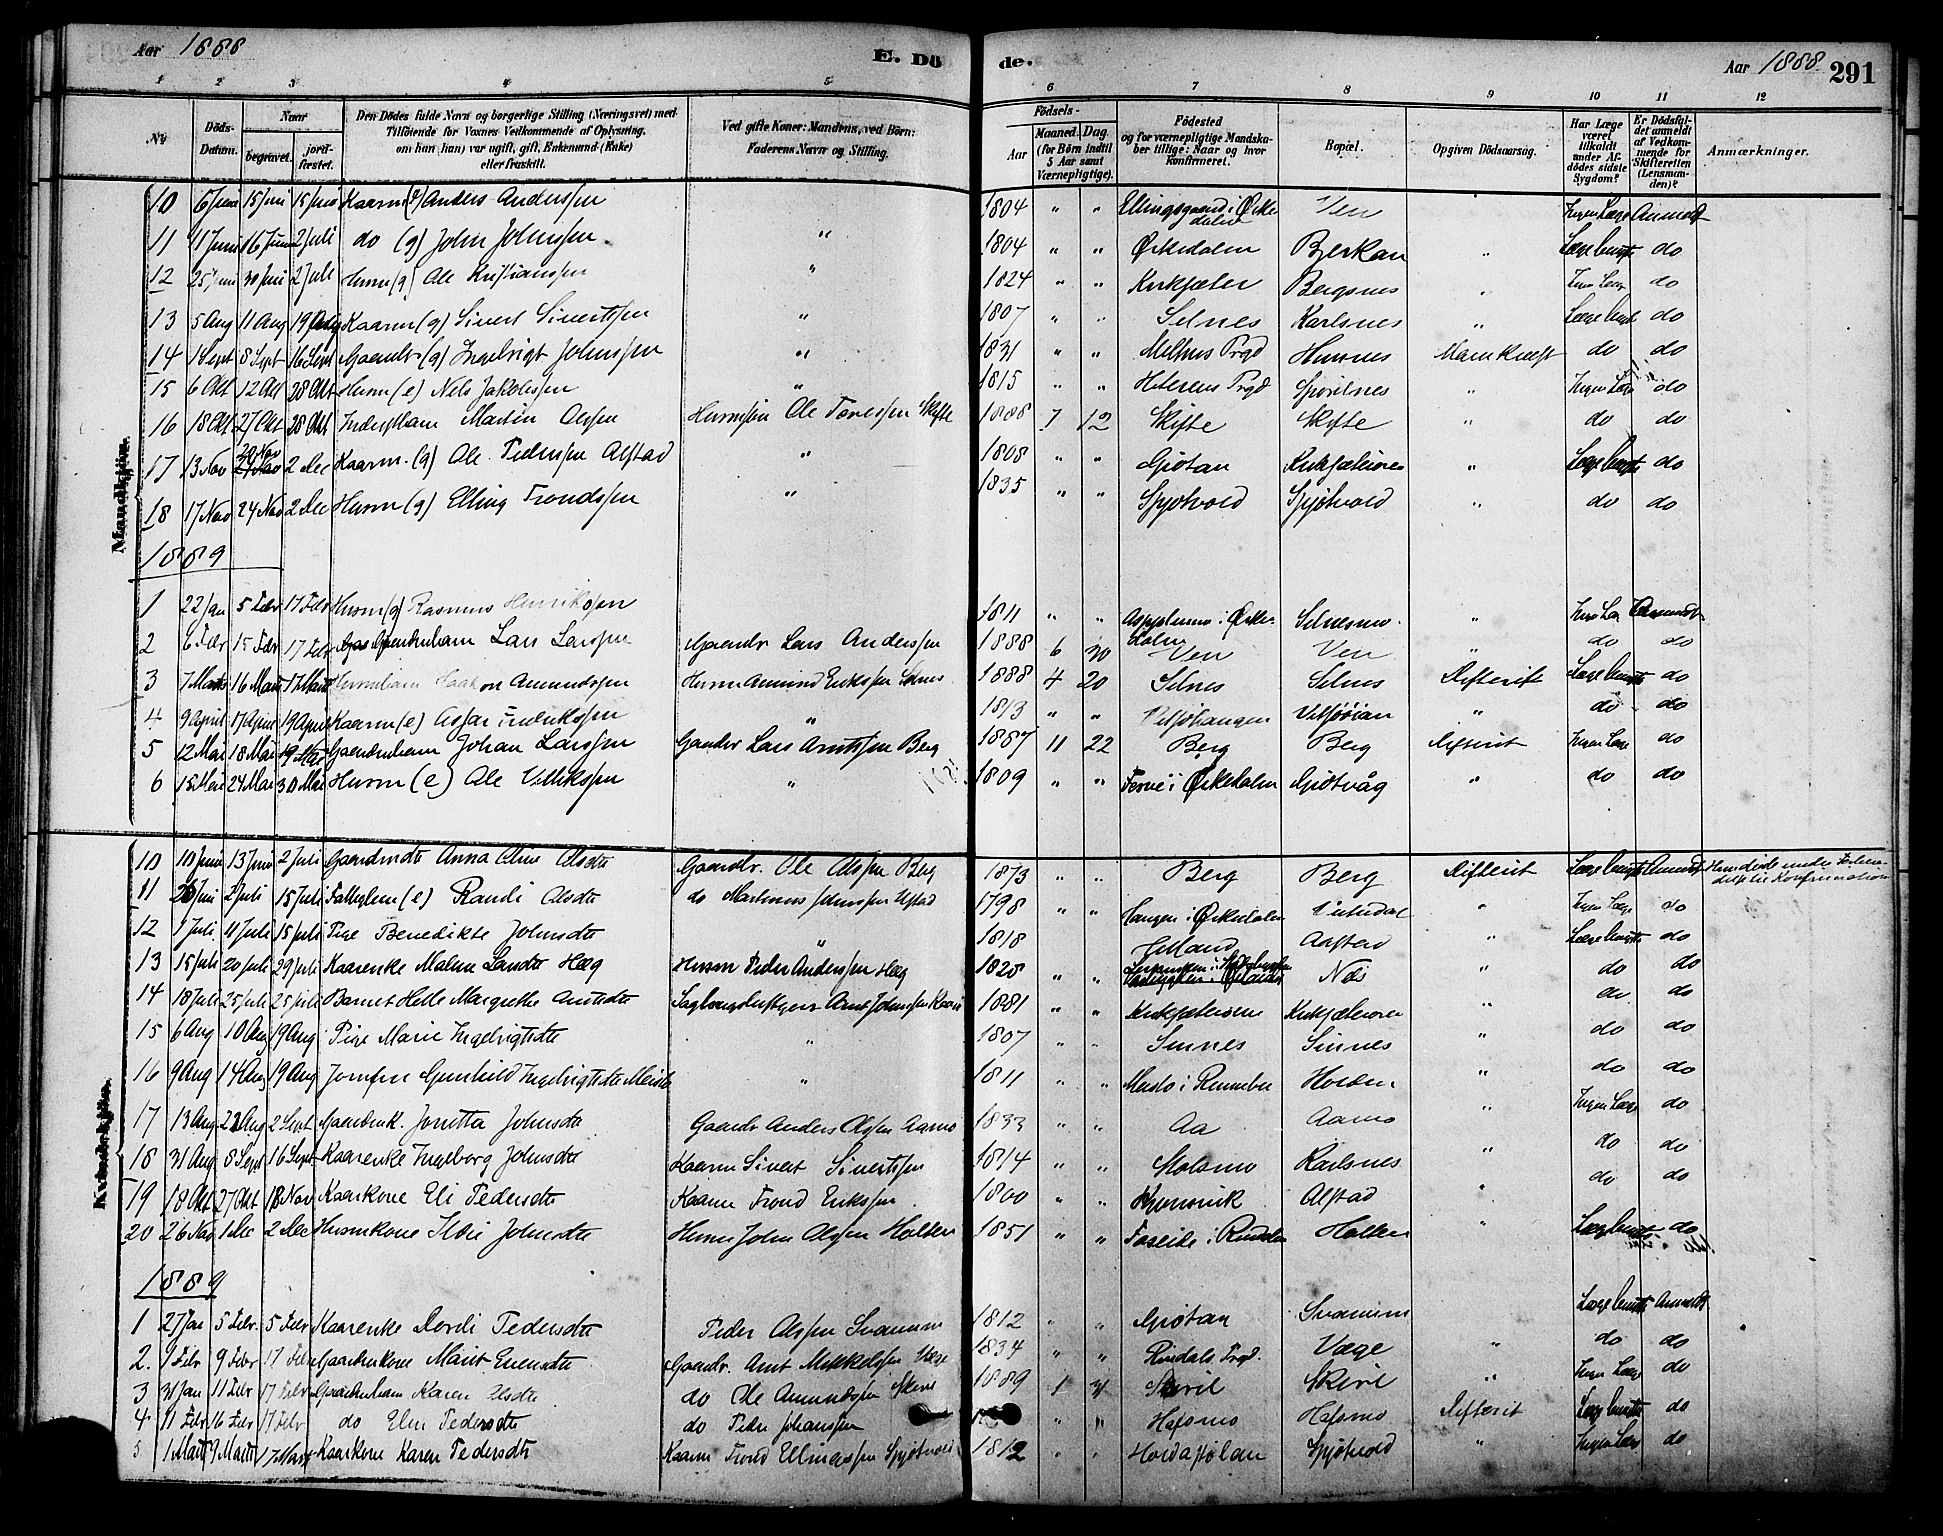 Aar 1888
E. Dö
de.
Aar 1888
291
1 2 3 4 5 6 7 8 9 10 11 12
No
Döds-Datum.
Naar
begravet.
jordfæstet.
Den Dödes fulde Navn og borgerlige Stilling (Næringsvei) med Tilföiende for Voxnes Vedkommende af Oplysning, om han (hun) var ugift, gift, Enkemand (Enke) eller fraskilt.
Ved gifte Koner: Mandens, ved Börn: Faderens Navn og Stilling.
Födsels-
Aar
Maaned. Dag.
(for Börn indtil 5 Aar samt Værnepligtige).
Födested og for værnepligtige Mandskaber tillige: Naar og hvor Konfirmeret.
Bopæl.
Opgiven Dödsaarsag.
Har Læge været tilkaldt under Afdödes sidste Sygdom?
Er Dödsfaldet anmeldt af Vedkommende for Skifteretten (Lensmanden)?
Anmærkninger.
Mandkjön.
10 6 Juni 15 Juni 15 Juni Kaarm (e) Anders Anderssen 1804 " " Ellingsgaard i Ørkedalen Ven Ingen Læge Anmeldt
11 11 Juni 16 Juni 2 Juli do (g) John Johnssen " 1804 " " Ørkedalen Bjerkan " Læge benyttet do
12 25 Juni 30 Juni 2 Juli Husm (g) Ole Kristianssen " 1824 " " Kirksæter Bergsnes " Ingen Læge do
13 5 Aug 11 Aug 19 Aug Kaarm (g) Sivert Sivertssen " 1807 " " Selnes Karlsnes " Læge benyttet do
14 1 Sept 8 Sept 16 Sept Gaardbr (g) Ingebrigt Johnssen " 1831 " " Melhus Prgd Hunnes Mavekræft do do
15 6 Okt 12 Okt 28 Okt Husm (e) Nels Jakobssen " 1815 " " Hiterens Prgd Sjörilnes " Ingen Læge do
16 18 Okt 27 Okt 28 Okt Inderstbarn Martin Olssen Husmssøn Ole Toressen Skifte 1888 7 12 Skifte Skifte " do do
17 13 Nov 20 Nov 2 Dec Kaarm. (g) Ole Pederssen Alstad " 1808 " " Gjøtan Kirksæterøren " Læge benyttet do
18 17 Nov 24 Nov 2 Dec Husm (g) Elling Trondssen " 1835 " " Spjøtvold Spjøtvold " do do
1889
1 22 Jan 5 Febr 17 Febr Husm (g) Rasmus Henrikssen 1811 " " i Ørkedalen Selnesmo " Ingen Læge Anmeldt
2 6 Febr 15 Febr 17 Febr Lars Larssen Gaardbr Lars Anderssen 1888 6 30 Ven Ven " do do
3 7 Marts 16 Marts 17 Marts Husmbarn Haakon Amundssen Husm Amund Erikssen Selnes 1888 4 20 Selnes Selnes Difterit Læge benyttet do
4 9 April 17 April 19 April Kaarm (e) Aspar Fredrikssen " 1813 " " Vesjöhaugen Vesjööian " do do
5 12 Mai 18 Mai 19 Mai Gaardmbarn Johan Larssen Gaardbr Lars Arntssen Berg 1887 11 22 Berg Berg Difterit Ingen Læge do
6 15 Mai 24 Mai 30 Mai Husm (e) Ole Villikssen " 1809 " " i Ørkedalen Gjøtvåg " do do
Kvindekjön.
10 10 Juni 13 Juni 2 Juli Gaardmdtr Anna Oline Olsdtr Gaardbr. Ole Olssen Berg 1873 " " Berg Berg Difterit Læge benyttet Anmeldt Hun døde under Forberedelse til Konfirmation
11 26 Juni 2 Juli 15 Juli Fattiglem (e) Randi Olsdtr do Martinus Johnssen Ulstad 1798 " " Haugen i Ørkedalen Vinterdal " Ingen Læge do
12 1 Juli 11 Juli 15 Juli Pige Benedikte Johnsdtr " 1818 Helland Aafsted " Læge benyttet do
13 15 Juli 20 Juli 29 Juli Kaarenke Malene Larsdtr Hæg Husm Peder Anderssen Hæg 1828 " " Nes do do
14 18 Juli 25 Juli 25 Juli Barnet Helle Margrethe Arntsdtr Sagbrugsbestyrer Arnt Johnssen 1881 " " Kirksæterøren Kirksæterøren " do do
15 6 Aug 10 Aug 19 Aug Pige Marie Ingebrigtsdtr " 1807 " " Sinnes Sinnes " do do
16 9 Aug 14 Aug 19 Aug Jomfru Gunhild Ingebrigtsdtr " 1811 " " i Rennebu Holden " do do
17 13 Aug 23 Aug 2 Sept Gaardmk. Jonetta Johnsdtr Gaardbr Anders Olssen Aamo 1833 " " Aa Aamo " Ingen Læge do
18 31 Aug 8 Sept 16 Sept Kaarenke Ingeborg Johnsdtr Kaarm Sivert Sivertssen 1814 " " Stolsmo Karlsnes " do do
19 18 Okt 27 Okt 18 Nov Kaarkone Eli Pedersdtr Kaarm Trond Erikssen 1800 " " Kjonsvik Alstad " do do
20 26 Nov 1 Dec 2 Dec Husmkone Ildri Johnsdtr Husm John Olssen Holden 1851 " " Foseide i Rindalen Holden " Læge benyttet do
1889
1 27 Jan 5 Febr. 5 Febr Kaarenke Dordi Pedersdtr Peder Olssen Svanem 1812 " " Gjøtan Svanem Læge benyttet Anmeldt
2. 1 Febr 9 Febr 17 Febr Gaardmkone Marit Evensdtr Gaardbr. Arnt Mikkelssen Væge 1834 " " Rindals Prgd. Væge " do do
3 31 Jan 11 Febr 17 Febr Gaardmbarn Karen Olsdtr do Ole Amundssen 1889 1 31 Ingen Læge do
4 11 Febr 16 Febr 17 Febr do Elen Pedersdtr do Peder Johanssen " Hafsmo Hafsmo Difterit Læge benyttet do
5 1 Marts 9 Marts 17 Marts Kaarkone Karen Pedersdtr Kaarm Trond Ellingssen Spjøtvold 1812 " " Spjøtvold " Ingen Læge do